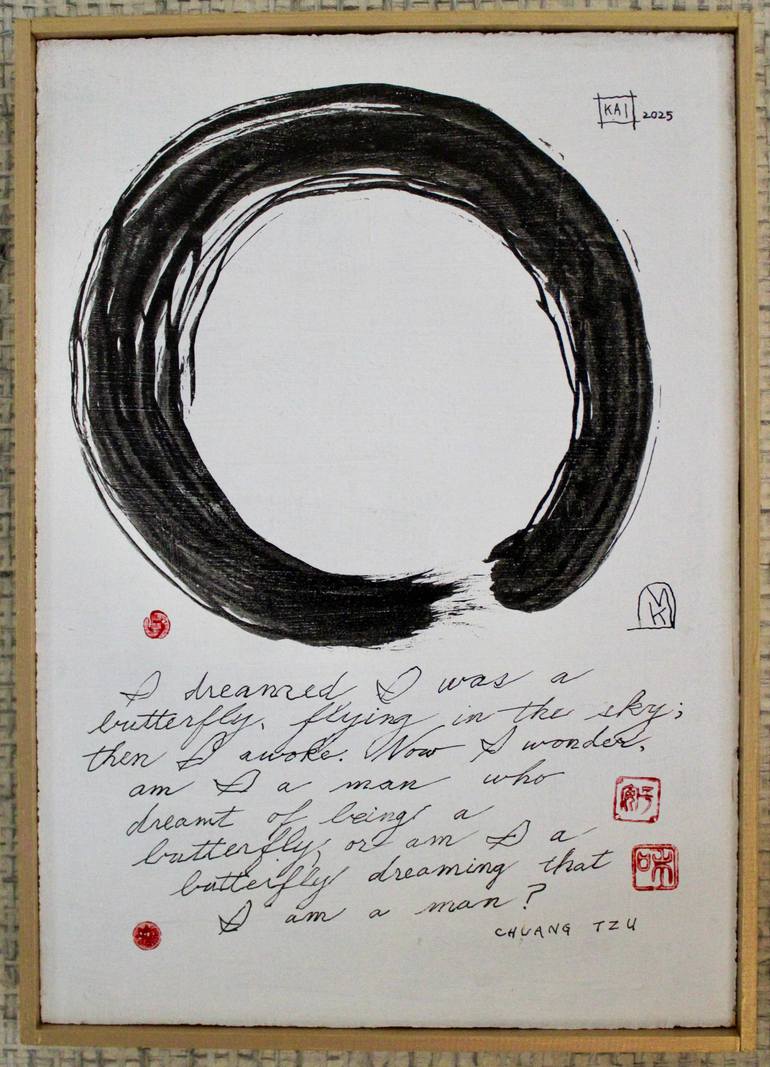 KAI 2025
MK
I dreamed I was a
butterfly, flying in the sky;
then I awoke. Now I wonder,
am I a man who
dreamt of being a
butterfly, or am I a
butterfly dreaming that
I am a man?
CHUANG TZU